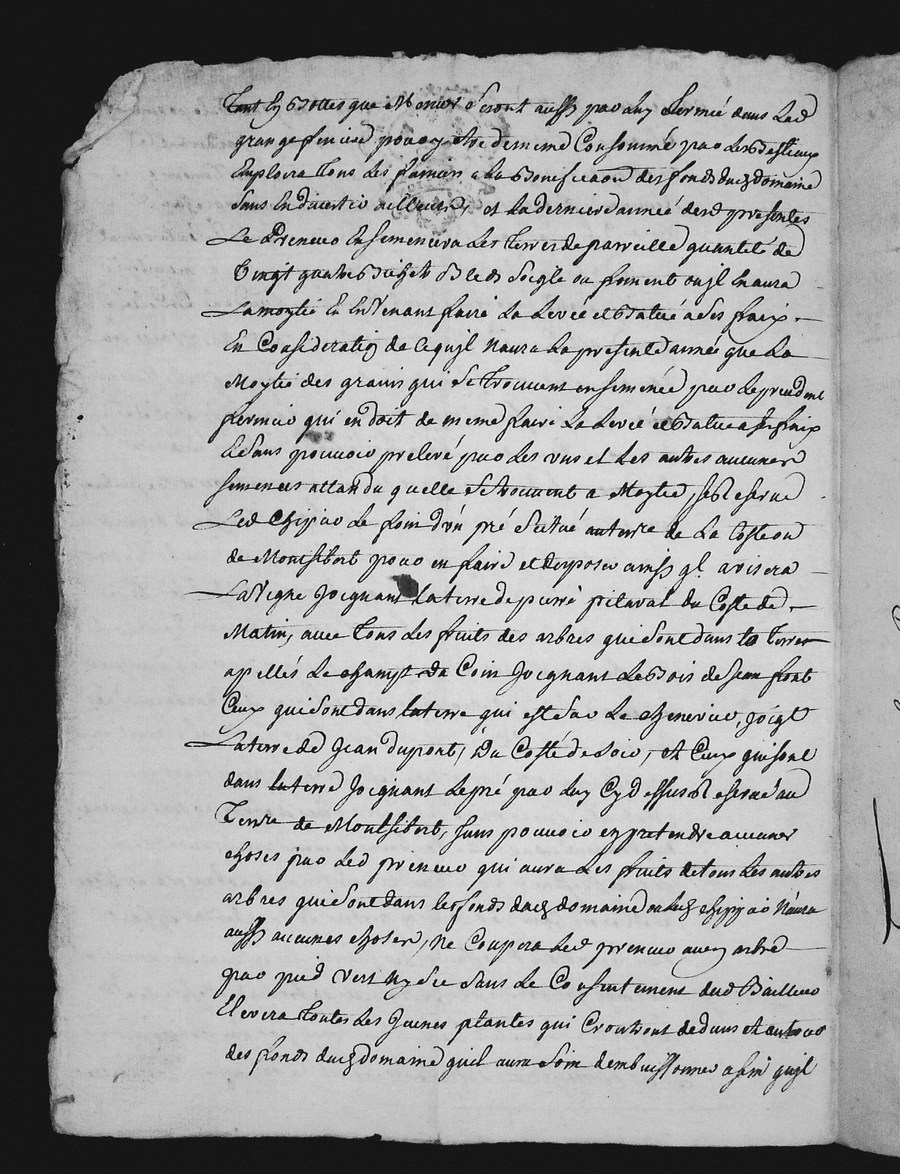 Tant en Bottes que Menier seront aussi par luy Sermé dans Lad
grange feniere pour y etre de meme Consommé par Les Bestiaux
Emploira Tous Les fumiers a La Bonificaon des fonds dud domaine
Sans En divertir ailleurs, et La derniere année des presentes
Le Preneur Ensemencera Les Terres de pareille quantité de
Vingt quatre Bichets Bleds Seigle ou froment ou jl En aura
La moytié En En Venant faire La Levée et Batue a ses fraix
En Consideration de ce quil Naura La presente année que La
Moytié des grains qui se Trouvent ensemencé par Le precedent
fermier qui en doit de meme faire La Levée et Batue a ses fraix
Le Sans pouvoir prelevé par Les uns et Les autres aucunes
semences attandu quelle se trouvent a Moytié, se Reserve
Led Chippier Le foin d'un pré Scitué au terre de La Coste ou
de Montsibert pour en faire et disposer ainsi ql avisera
La Vigne Joignant La terre de pierre pitaval du Coste de
Matin, avec Tous Les fruits des arbres qui sont dans les Terres
apellés Le Champt du Coin Joignant Le Bois de Jean font
Ceux qui sont dans la terre qui est sur Le Chenevier, Joigt
La terre de Jean dupont, du Costé de Soir, et Ceux qui sont
dans la terre Joignant Le pré par Luy Cy dessus Reservé au
Terre de Montsibert, sans pouvoir en pretendre aucunes
choses par Led preneur qui aura Les fruits de tous Les autres
arbres qui sont dans les fonds dud domaine ou Led Chippier N'aura
aussi aucunes choses, Ne Coupera Led preneur aucun arbre
par pied vert Ny sec Sans Le Consentement dud Bailleur
Elevera Toutes Les Jeunes plantes qui Croitront dedans et autour
des fonds dud domaine quil aura Soin dembuissonner afin quil